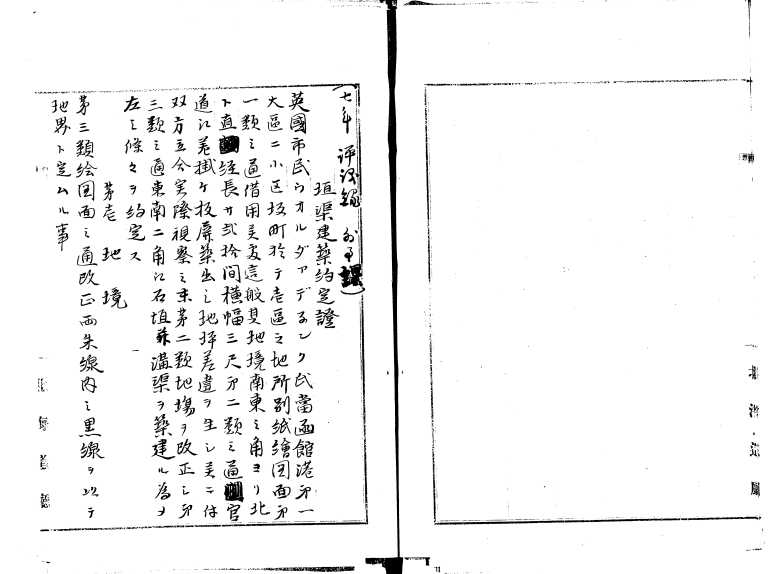 七年 評議録 外事課
垣渠建築約定證
英國市民ウオルダアデネンク氏當函館港第一
大區二小区坂町於テ壱區之地所別紙繪図面第
一類之通借用其処這般其地境南東之角ヨリ北
ト直経長サ弐拾間横幅三尺第二類之通官
道江差掛ケ板屏築出シ地坪差違ヲ生シ其ニ付
双方立会実際視察之末第二類地場ヲ改正シ第
三類之通東南二角江石垣并溝渠ヲ築建ル為ヲ
左之條々ヲ約定ス
第壱 地境
第三類絵図面之通改正西朱線内之黒線ヲ以テ
地界ト定ムル事